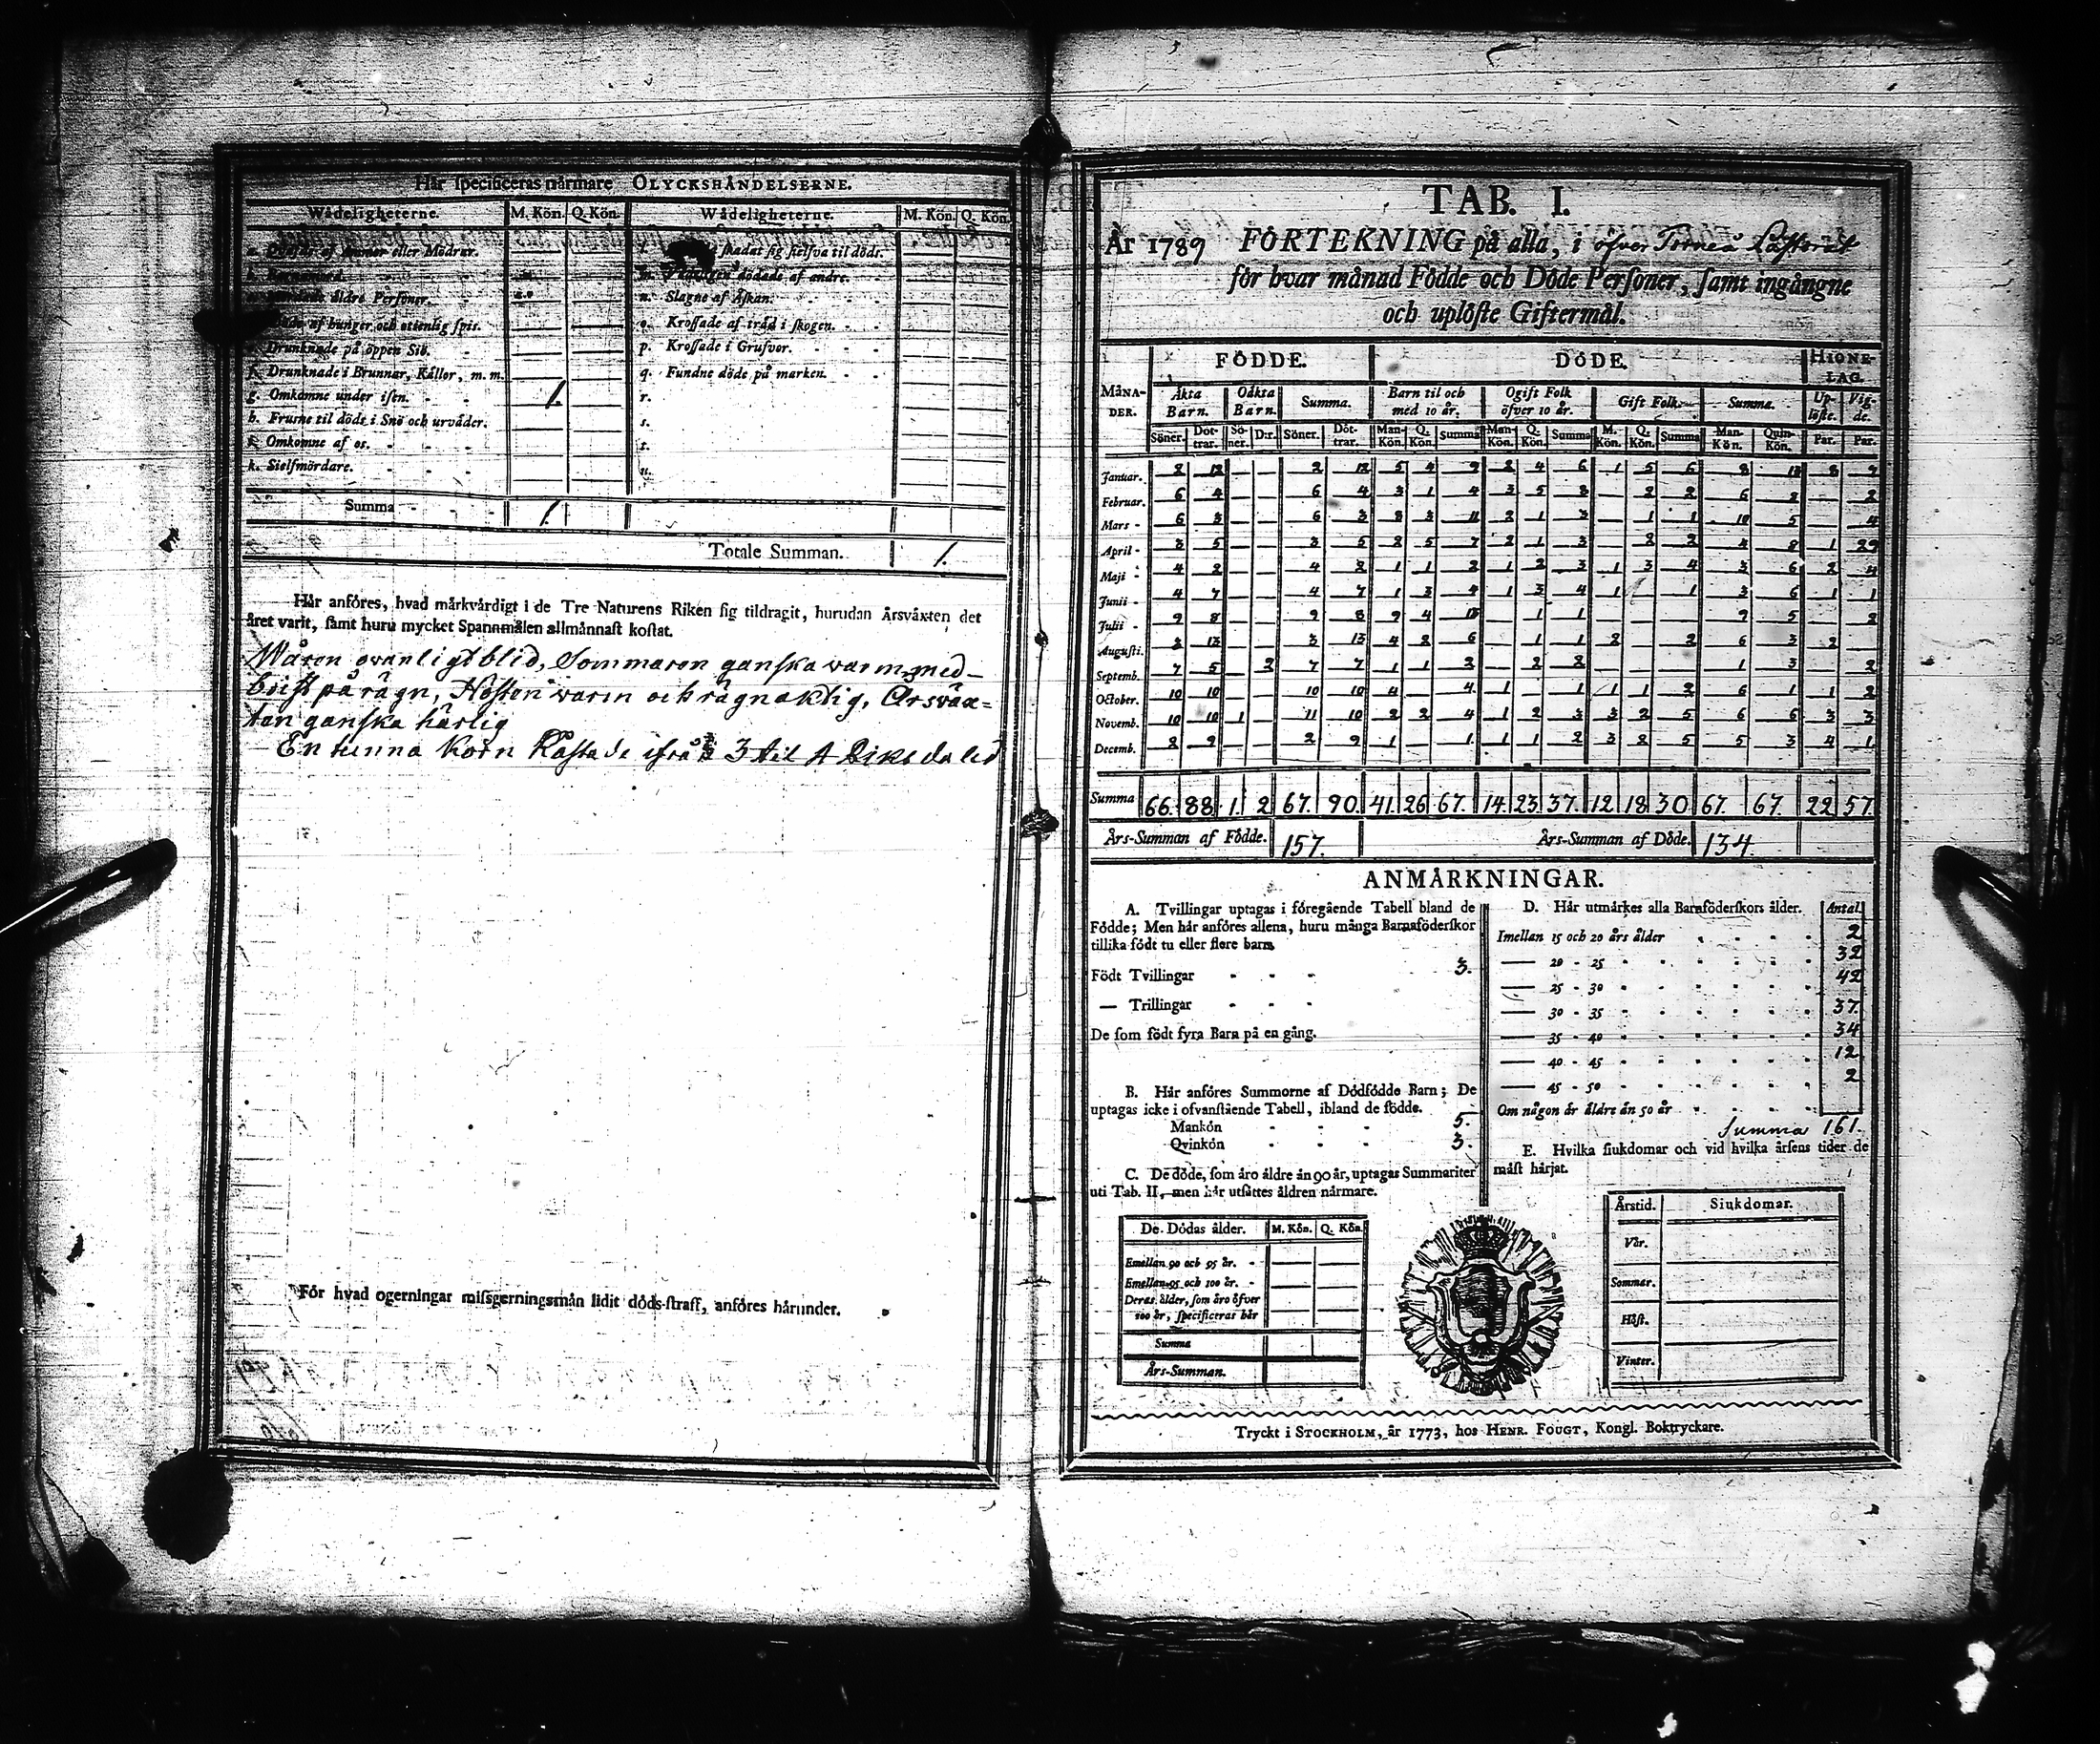 Här specificeras närmare OLYCKSHÄNDELSERNE.
Wådeligheterne. M. Kön. Q. Kön. Wådeligheterne. M. Kön. Q. Kön.
eller Mödrar. skadat sig sielfva til döds.
dödade af andre.
äldre Personer. n. Slagne af Åskan.
af hunger och otienlig spis. o. Krossade af träd i skogen.
Drunknade på öppen Siö. p. Krossade i Grufvor.
f. Drunknade i Brunnar, Källor, m. m. q. Fundne döde på marken.
g. Omkomne under isen. 1. r.
h. Frusne til döds i Snö och urväder. s.
Omkomne af os. t.
k. Sielfmördare. u.
Summa 1.
Totale Summan. 1.
Här anföres, hvad märkvärdigt i de Tre Naturens Riken sig tildragit, hurudan Årsväxten det
året varit, samt huru mycket Spannmålen allmännast kostat.
Wåren ovanligt blid, Sommaren ganska warm med
brist på rägn, Hösten warm och rägnaktig, Årsväx=
ten ganska härlig
En tunna Korn Kåstade ifrån 3 til 4 Riksdaler
För hvad ogerningar missgerningsmän lidit döds-straff, anföres härunder.
TAB. I.
År 1789 FÖRTEKNING på alla, i öfver Torneå Pastorat
för hvar månad Födde och Döde Personer, samt ingångne
och uplöste Giftermål.
FÖDDE. DÖDE. HIONE-LAG.
MÅNA-DER. Äkta Barn. Oäkta Barn. Summa. Barn til och med 10 år. Ogift Folk öfver 10 år. Gift Folk. Summa. Up-löste. Vig-de.
Söner. Döt-trar. Sö-ner. D:r. Söner. Döt-trar. Man-Kön. Q. Kön. Summa Man-Kön. Q. Kön. Summa M. Kön. Q. Kön. Summa Man-Kön. Quin-Kön. Par. Par.
Januar. 2 12 2 12 5 4 9 2 4 6 1 5 6 8 13 8 7
Februar. 6 4 6 4 3 1 4 3 5 8 2 2 6 8 2
Mars 6 3 6 3 8 3 11 2 1 3 1 1 10 5 4
April 3 5 3 5 2 5 7 2 1 3 2 2 4 8 1 29
Maji 4 2 4 2 1 1 2 1 2 3 1 3 4 3 6 2 4
Junii 4 7 4 7 1 3 4 1 3 4 1 1 3 6 1 1
Julii 9 8 9 8 9 4 13 1 1 9 5 2
Augusti. 3 13 3 13 4 2 6 1 1 2 2 6 3 2
Septemb. 7 5 2 7 7 1 1 2 2 2 1 3 2
October. 10 10 10 10 4 4 1 1 1 1 2 6 1 1 2
Novemb. 10 10 1 11 10 2 2 4 1 2 3 3 2 5 6 6 3 3
Decemb. 2 9 2 9 1 1 1 1 2 3 2 5 5 3 4 1
Summa 66. 88. 1 2 67. 90. 41. 26 67. 14. 23 37. 12 18 30 67. 67. 22 57.
Års-Summan af Födde. 157. Års-Summan af Döde. 134.
ANMÄRKNINGAR.
A. Tvillingar uptagas i föregående Tabell bland de
Födde; Men här anföres allena, huru många Barnaföderskor
tillika födt tu eller flere barn.
Födt Tvillingar 3.
— Trillingar
De som födt fyra Barn på en gång.
B. Här anföres Summorne af Dödfödde Barn; De
uptagas icke i ofvanstående Tabell, ibland de födde.
Mankön 5.
Qvinkön 3.
C. De döde, som äro äldre än 90 år, uptagas Summariter
uti Tab. II, men här utsättes åldren närmare.
De Dödas ålder. M. Kön. Q. Kön.
Emellan 90 och 95 år.
Emellan 95 och 100 år.
Deras ålder, som äro öfver
100 år, specificeras här
Summa
Års-Summan.
D. Här utmärkes alla Barnföderskors ålder. Antal
Imellan 15 och 20 års ålder 2
— 20 - 25 32
— 25 - 30 42
— 30 - 35 37.
— 35 - 40 34
— 40 - 45 12
— 45 - 50 2
Om någon är äldre än 50 år
Summa 161.
E. Hvilka siukdomar och vid hvilka årsens tider de
mäst härjat.
Årstid. Siukdomar.
Vår.
Sommar.
Höst.
Vinter.
Tryckt i STOCKHOLM, år 1773, hos HENR. FOUGT, Kongl. Boktryckare.